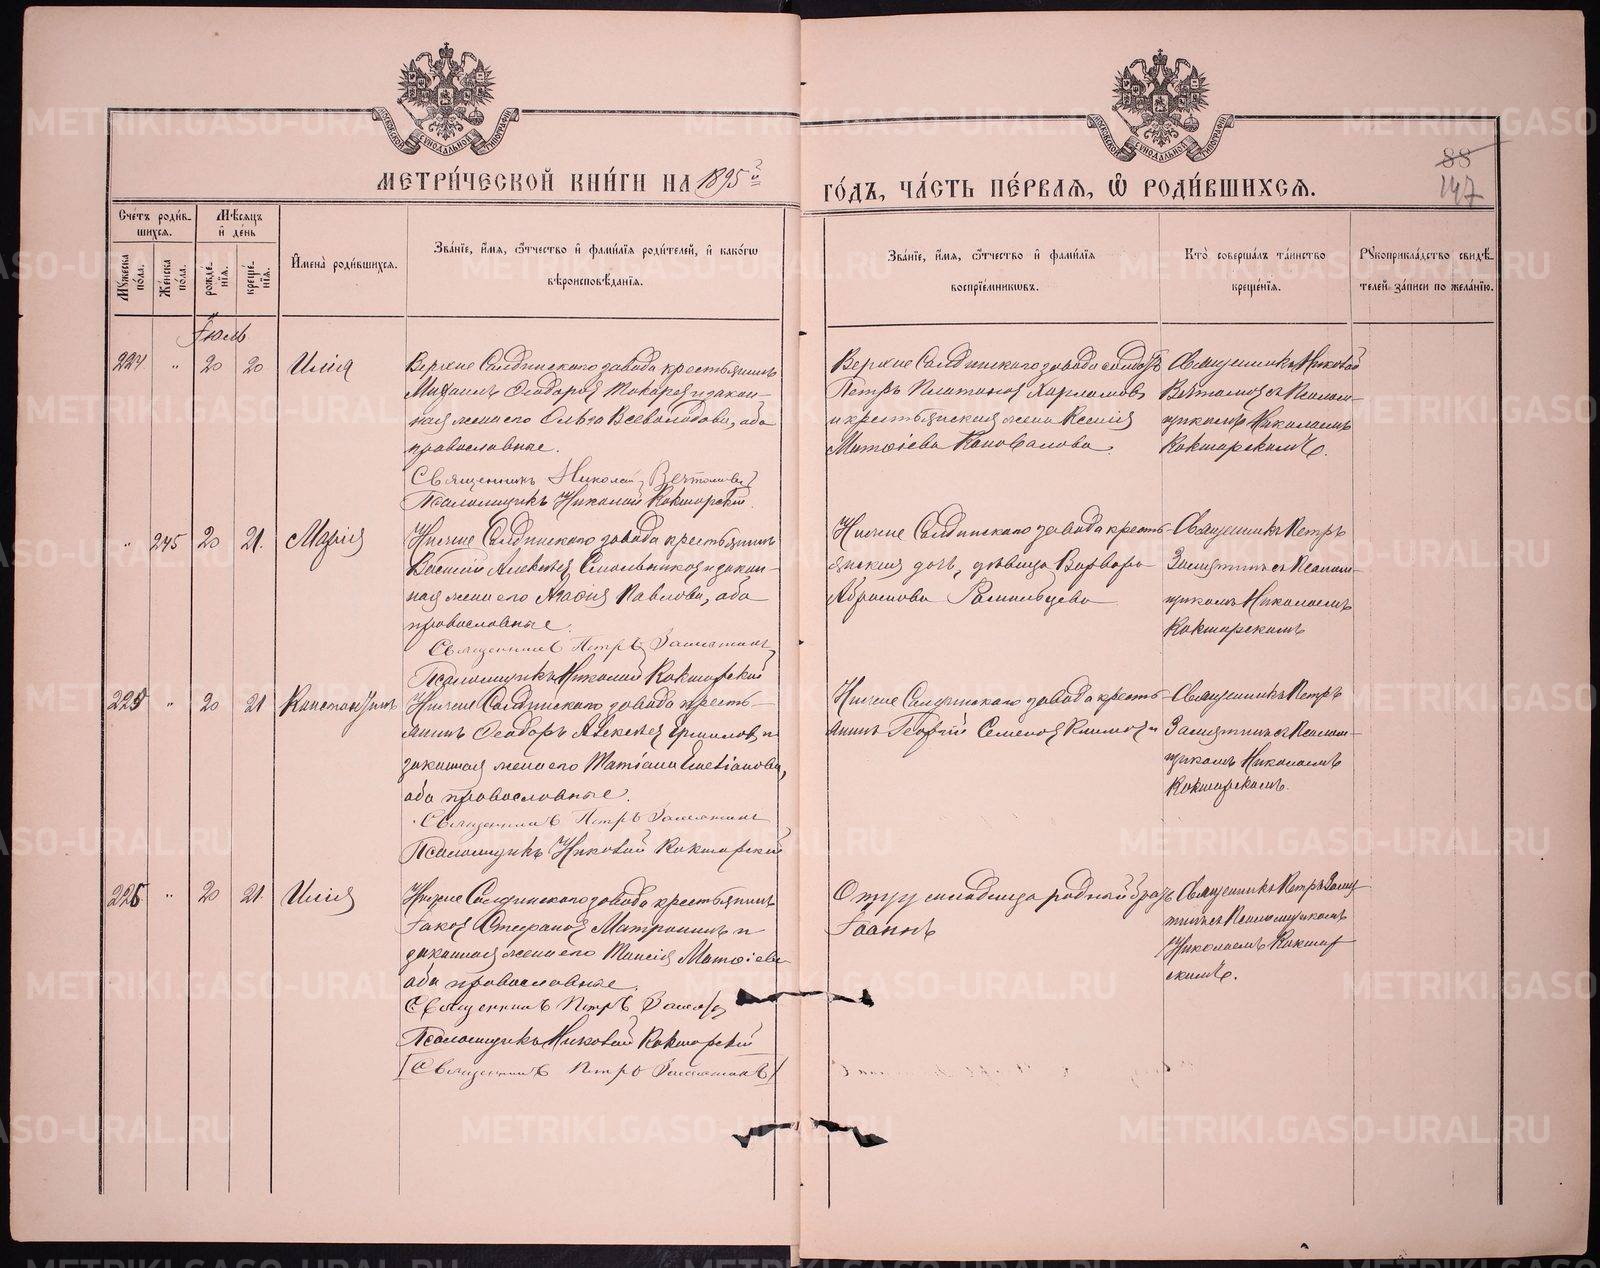 МЕТРИ́ЧЕСКОЙ КНИ́ГИ НА 1895й
ГО́ДЪ, ЧА́СТЬ ПЕ́РВАѦ, Ѿ РОДИ́ВШИХСѦ.
88
147
Сче́тъ роди́в-
шихсѧ.
Мꙋ́жеска по́ла.
Же́нска по́ла.
Мѣ́сѧцъ
и҆ де́нь
рожде́-
нїѧ.
креще́-
нїѧ.
И҆мена̀ роди́вшихсѧ.
Зва́нїе, и҆́мѧ, ѻ҆́тчество и҆ фами́лїѧ роди́телей, и҆ како́гѡ
вѣроисповѣ́данїѧ.
Зва́нїе, и҆́мѧ, ѻ҆́тчество и҆ фами́лїѧ
воспрїе́мникѡвъ.
Кто̀ соверша́лъ та́инство
креще́нїѧ.
Рꙋкоприкла́дство свидѣ́-
телей за́писи по жела́нїю.
Іюль
224 " 20 20 Илія
Верхне Салдинскаго завода крестьянинъ
Михаилъ Ѳеодоровъ Токаревъ и закон-
ная жена его Ольга Всеволодова, оба
православные.
Священникъ Николай
Псаломщикъ Николай Кокшарскій
Верхне Салдинскаго завода солдатъ
Петръ Платоновъ Харламовъ
и крестьянская жена Ксенія
Матѳіева Коновалова
Священникъ Николай
съ Псалом-
щикомъ Николаемъ
Кокшарскимъ.
" 245 20 21. Марія
Нижне Салдинскаго завода крестьянинъ
Василій Алексѣевъ и закон-
ная жена его Агафія Павлова, оба
православные.
Священникъ Петръ Замятинъ
Псаломщикъ Николай Кокшарскій
Нижне Салдинскаго завода кресть-
янская дочь, дѣвица Варвара
Абрамова
Священникъ Петръ
Замятинъ съ Псалом-
щикомъ Николаемъ
Кокшарскимъ
225 " 20 21 Константинъ
Нижне Салдинскаго завода кресть-
янинъ Ѳеодоръ Алексѣевъ Ермиловъ и
законная жена его Татіана
оба православные.
Священникъ Петръ Замятинъ
Псаломщикъ Николай Кокшарскій
Нижне Салдинскаго завода кресть-
янинъ Георгій Семеновъ
Священникъ Петръ
Замятинъ съ Псалом-
щикомъ Николаемъ
Кокшарскимъ.
226 " 20 21. Илія
Нижне Салдинскаго завода крестьянинъ
Іаковъ Стефановъ и
законная жена его Матѳіева
оба православные.
Священникъ Петръ Замятинъ
Псаломщикъ Николай Кокшарскій
Священникъ Петръ Замятинъ
Отцу младенца родный братъ
Іоаннъ
Священникъ Петръ Замя-
тинъ съ Псаломщикомъ
Николаемъ Кокшар-
скимъ.
METRIKI.GASO-URAL.RU